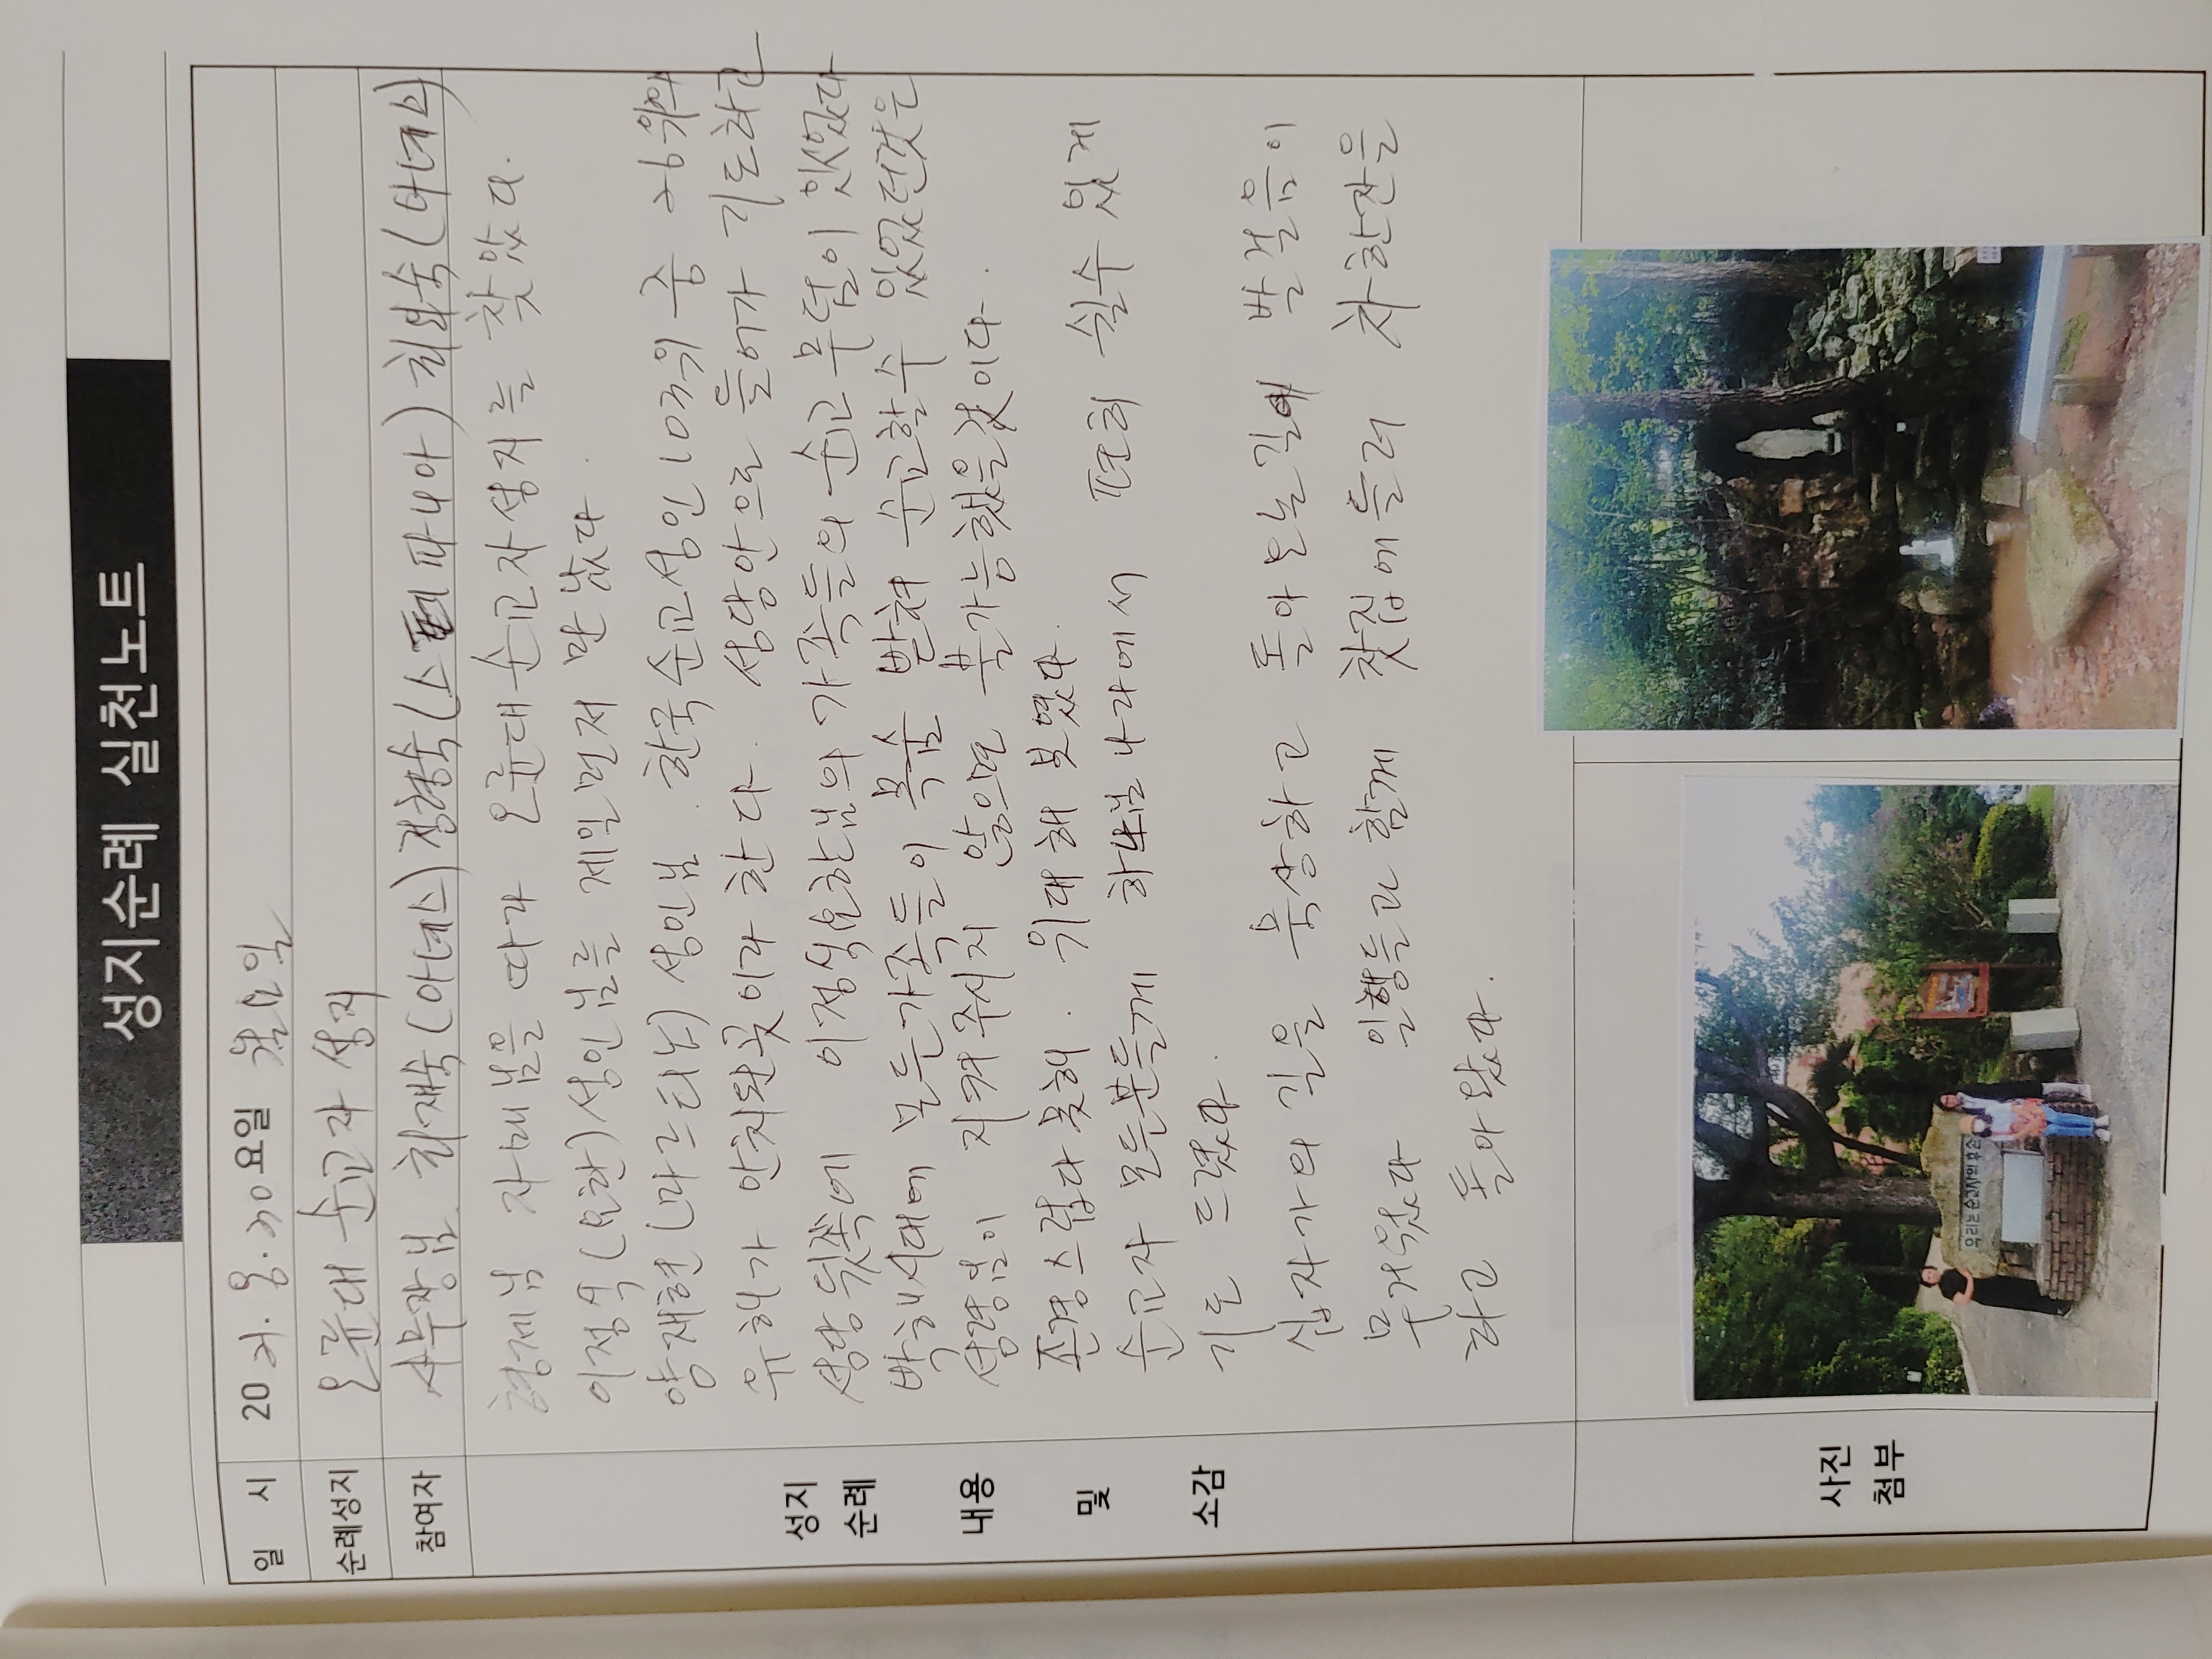 성지순례 실천노트
일 시 20 21. 9. 30 요일 목요일
순례성지 오륜대 순교자 성지
참여자 사무장님. 최재숙(아네스) 정형숙(스테파니아) 최화숙(아네스)
형제님 자매님을 따라 오륜대순교자성지를 찾았다.
이정식(요한)성인님을 제일먼저 만났다.
양재현(마르티노) 성인님. 한국순교성인 103위 중 26위의
유해가 안치된곳이라 한다. 성당안으로 들어가 기도하고
성당 뒷쪽에 이정식요한님의 가족들의 순교 무덤이 있었다
박해시대에 모든가족들이 목숨 받쳐 순교할수 있었던것은
성령님이 지켜주시지 않으면 불가능했을것이다.
존경스럽다 못해. 위대해 보였다.
순교자 모든분들께 하느님 나라에서 편히 쉴수 있게
기도 드렸다.
십자가의 길을 묵상하고 돌아오는길에 발걸음이
무거웠다 일행들과 함께 찻집에들려 차한잔을
하고 돌아왔다.
성지
순례
내용
및
소감
사진
첨부
우리는 순교자의 후손